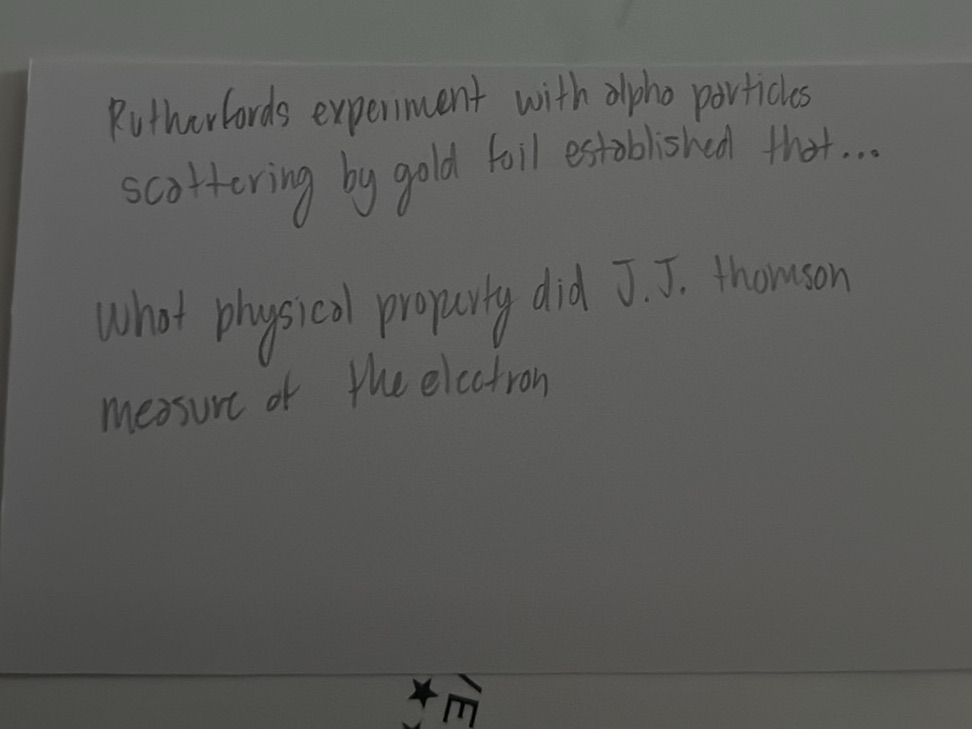 Rutherfords experiment with alpha particles
scattering by gold foil established that...
What physical property did J.J. thomson
measure of the electron
★ VE